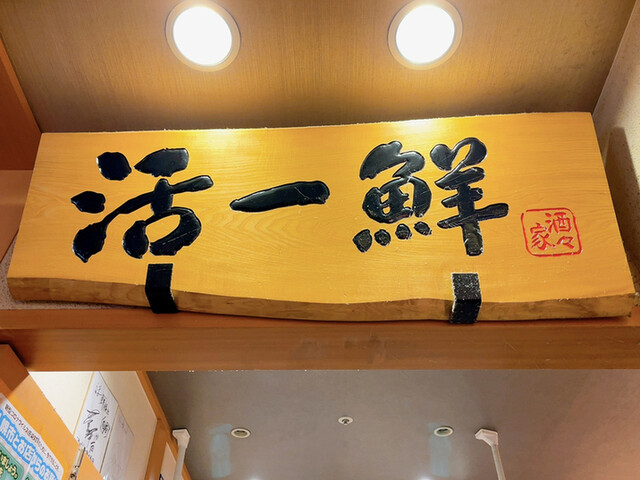 活一鮮
酒々家